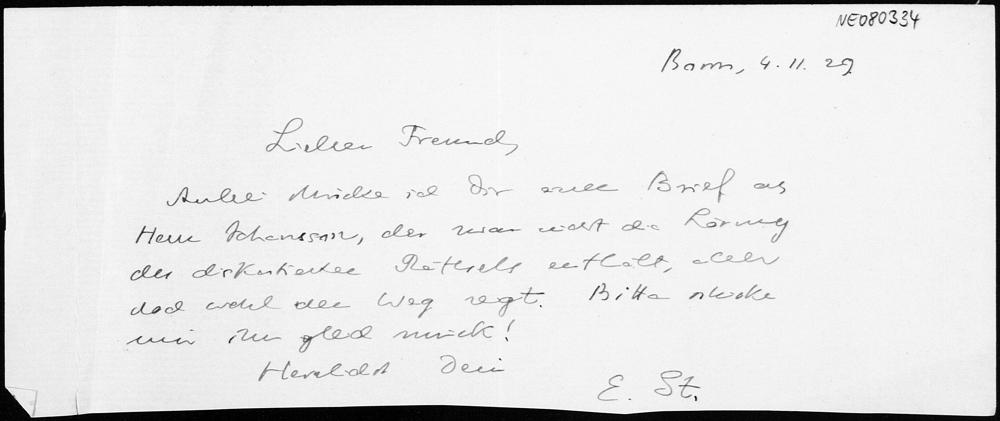 NE080334
Bonn, 4.11.29
Lieber Freund,
Anbei schicke ich Dir einen Brief an
Herrn Johansson, der zwar nicht die Lösung
des diskutierten Rätsels enthält, aber
doch wohl den Weg zeigt. Bitte schicke
mir ihn gleich zurück!
Herzlichst Dein
E. St.